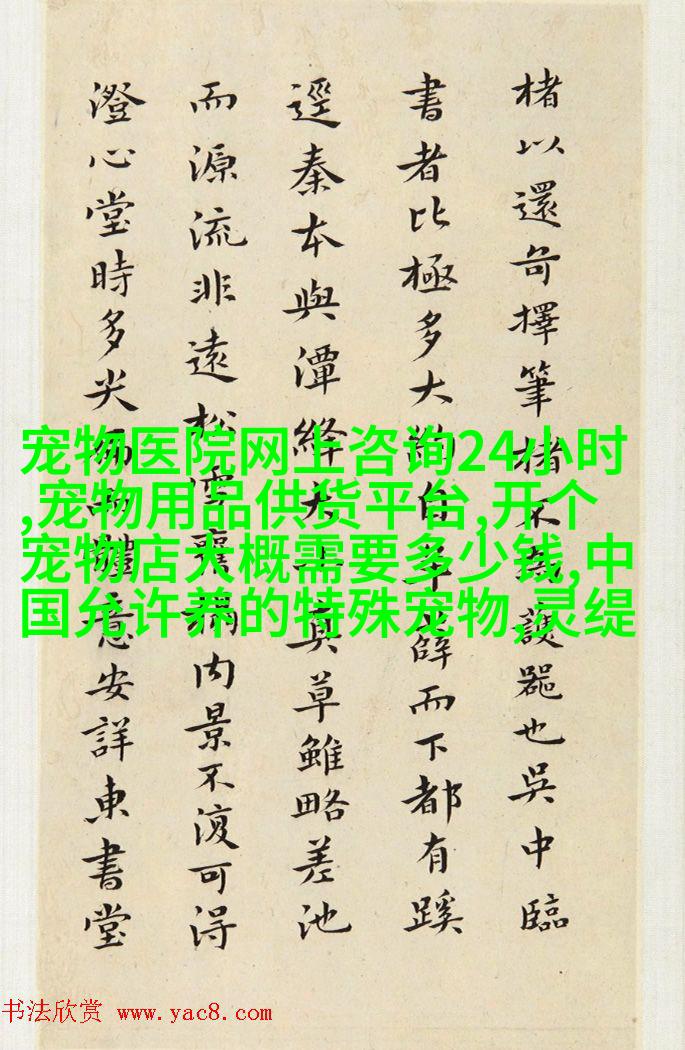 楮以還奇擇筆楮不護器也吳中臨
書者比極多大約自羊薛而下都有蹊
逕秦本與潭絳真草雖略差池
而源流非遠松雪稱内景不復可得
澄心堂時多尖體意安詳東書堂
宠物医院网上咨询24小时
,宠物用品供货平台,开个
宠物店大概需要多少钱,中
国允许养的特殊宠物,灵缇
书法欣赏 www.yac8.com